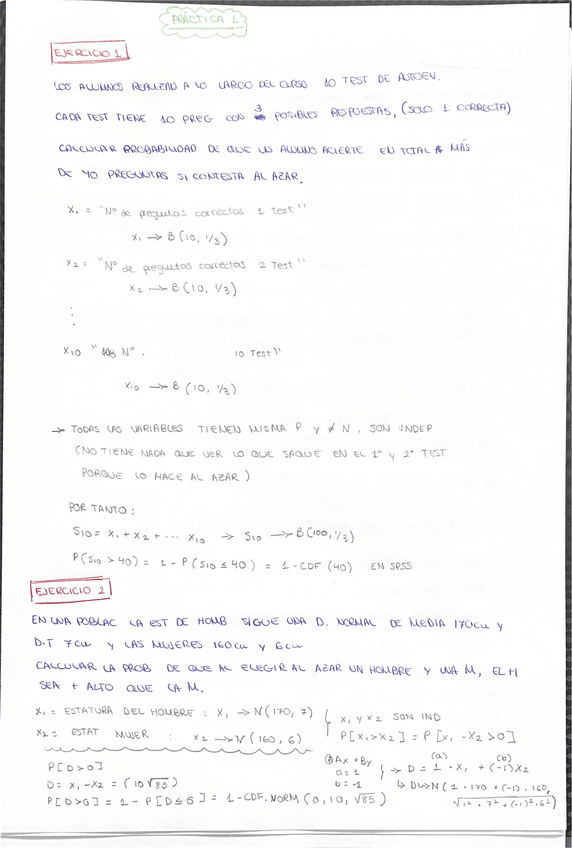 PRÁCTICA 1
EJERCICIO 1
LOS ALUMNOS REALIZAN A LO LARGO DEL CURSO 10 TEST DE AUTOEV.
CADA TEST TIENE 10 PREG CON 3 POSIBLES RESPUESTAS, (SOLO 1 CORRECTA)
CALCULAR PROBABILIDAD DE QUE UN ALUMNO ACIERTE EN TOTAL MÁS
DE 40 PREGUNTAS SI CONTESTA AL AZAR.
X₁ = "Nº de preguntas correctas 1 Test"
X₁ → B(10, 1/3)
X₂ = "Nº de preguntas correctas 2 Test"
X₂ → B(10, 1/3)
X₁₀ " Nº . . . . 10 Test)"
X₁₀ → B(10, 1/3)
→ TODAS LAS VARIABLES TIENEN MISMA P Y ≠ N. SON INDEP
(NO TIENE NADA QUE VER LO QUE SAQUE EN EL 1º Y 2º TEST
PORQUE LO HACE AL AZAR)
POR TANTO:
S₁₀ = X₁ + X₂ + ... X₁₀ → S₁₀ → B(100, 1/3)
P(S₁₀ > 40) = 1 - P(S₁₀ ≤ 40) = 1 - CDF (40) EN SPSS
EJERCICIO 2
EN UNA POBLAC LA EST DE HOMB SIGUE UNA D. NORMAL DE MEDIA 170cm Y
D.T 7cm Y LAS MUJERES 160cm Y 6cm
CALCULAR LA PROB DE QUE AL ELEGIR AL AZAR UN HOMBRE Y UNA M, EL H
SEA + ALTO QUE LA M.
X₁ = ESTATURA DEL HOMBRE : X₁ → N(170, 7)
X₂ = ESTAT MUJER : X₂ → N(160, 6)
X₁ Y X₂ SON IND
P[X₁ > X₂] = P[X₁ - X₂ > 0]
P[D > 0]
D = X₁ - X₂ = (10 √85)
P[D > 0] = 1 - P[D ≤ 0] = 1 - CDF.NORM (0, 10, √85)
Ax + By
a = 1
b = -1
(a) (b)
→ D = 1 · X₁ + (-1) X₂
↳ D → N(1 · 170 + (-1) · 160,
√1² · 7² + (-1)² · 6²)